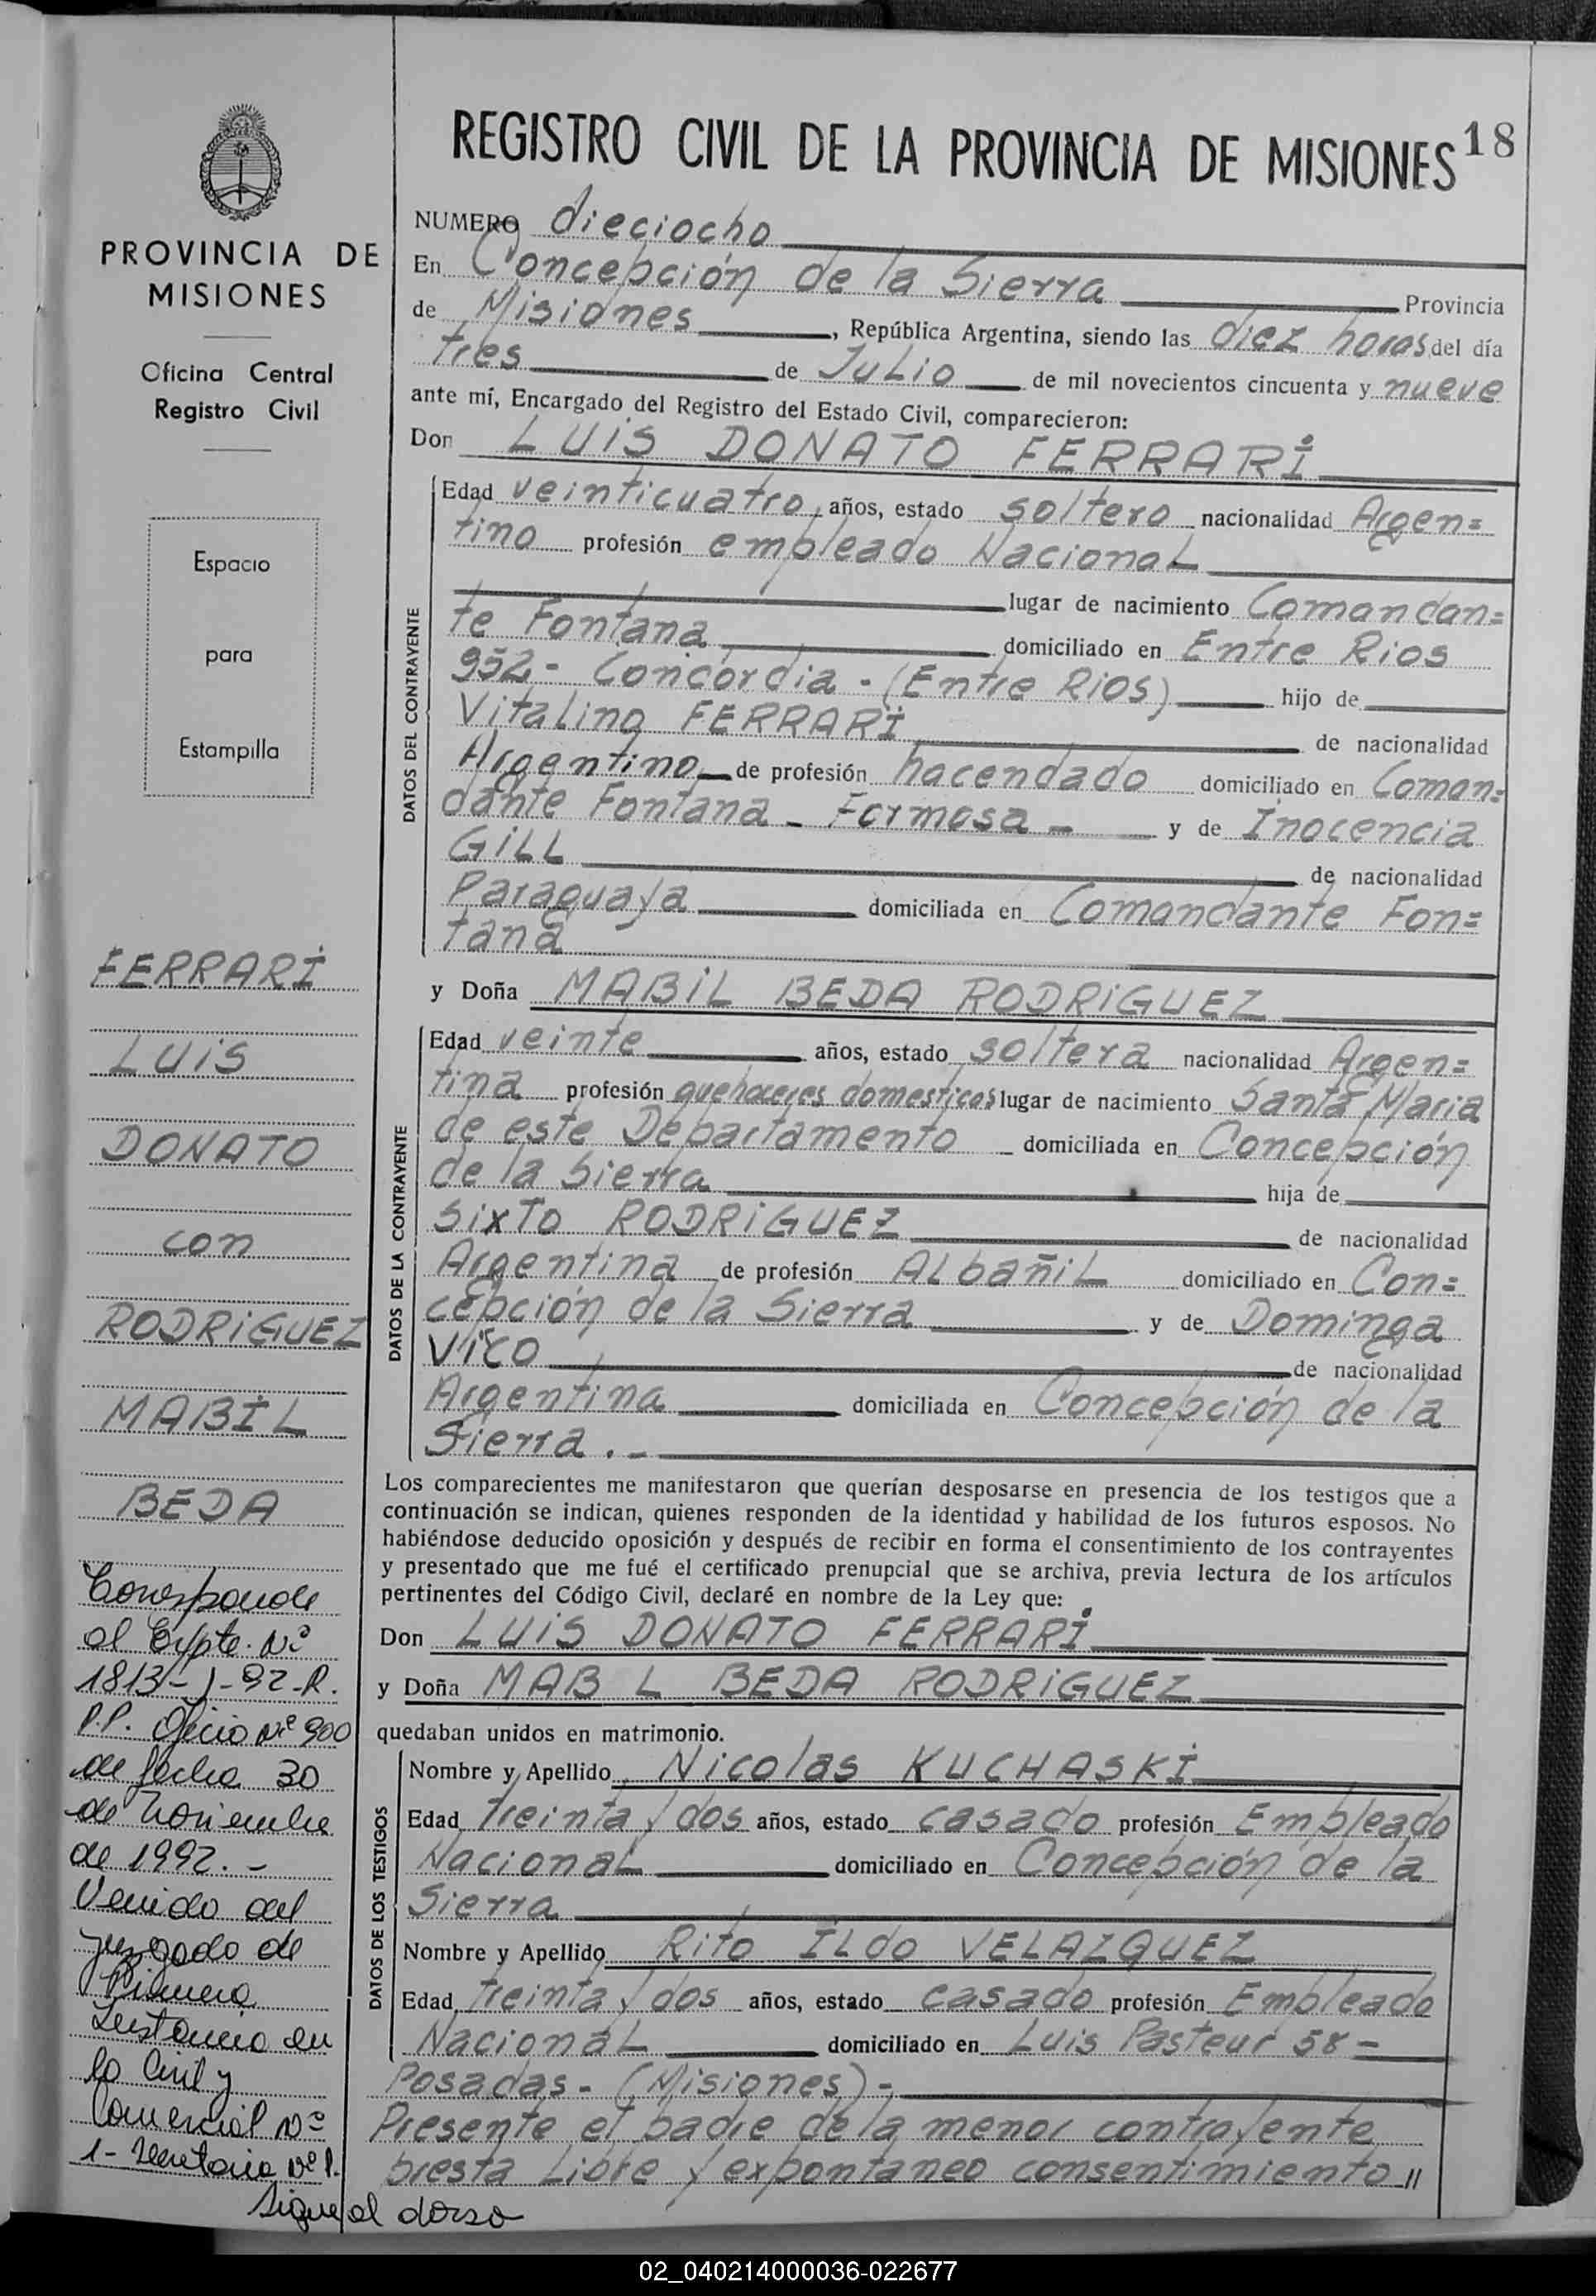 REGISTRO CIVIL DE LA PROVINCIA DE MISIONES 18
NUMERO dieciocho
En Concepción de la Sierra Provincia
de Misiones, República Argentina, siendo las diez horas del día
tres de Julio de mil novecientos cincuenta y nueve
ante mí, Encargado del Registro del Estado Civil, comparecieron:
Don LUIS DONATO FERRARI
DATOS DEL CONTRAYENTE
Edad veinticuatro, años, estado soltero nacionalidad Argen=
tino profesión empleado Nacional
lugar de nacimiento Comandan=
te Fontana domiciliado en Entre Rios
952- Concordia - (Entre Rios) hijo de
Vitalino FERRARI de nacionalidad
Argentino de profesión hacendado domiciliado en Coman=
dante Fontana - Formosa - y de Inocencia
GILL de nacionalidad
Paraguaya domiciliada en Comandante Fon=
tana
y Doña MABIL BEDA RODRIGUEZ
DATOS DE LA CONTRAYENTE
Edad veinte años, estado soltera nacionalidad Argen=
tina profesión quehaceres domesticos lugar de nacimiento Santa Maria
de este Departamento domiciliada en Concepción
de la Sierra hija de
Sixto RODRIGUEZ de nacionalidad
Argentina de profesión Albañil domiciliado en Con=
cepción de la Sierra y de Dominga
Vico de nacionalidad
Argentina domiciliada en Concepción de la
Sierra.-
Los comparecientes me manifestaron que querían desposarse en presencia de los testigos que a
continuación se indican, quienes responden de la identidad y habilidad de los futuros esposos. No
habiéndose deducido oposición y después de recibir en forma el consentimiento de los contrayentes
y presentado que me fué el certificado prenupcial que se archiva, previa lectura de los artículos
pertinentes del Código Civil, declaré en nombre de la Ley que:
Don LUIS DONATO FERRARI
y Doña MAB L BEDA RODRIGUEZ
quedaban unidos en matrimonio.
DATOS DE LOS TESTIGOS
Nombre y Apellido Nicolas KUCHASKI
Edad treinta y dos años, estado casado profesión Empleado
Nacional domiciliado en Concepción de la
Sierra
Nombre y Apellido Rito ILdo VELAZQUEZ
Edad treinta y dos años, estado casado profesión Empleado
Nacional domiciliado en Luis Pasteur 58-
Posadas- (Misiones)-
Presente el padre de la menor contrayente
presta Libre y expontaneo consentimiento //
PROVINCIA DE
MISIONES
Oficina Central
Registro Civil
Espacio
para
Estampilla
FERRARI
LUIS
DONATO
con
RODRIGUEZ
MABIL
BEDA
Corresponde
al Expte. Nº
1813-J-92-R.
P.P. Oficio Nº 900
de fecha 30
de Noviembre
de 1992.-
Venido del
Juzgado de
Primera
Instancia en
lo Civil y
Comercial Nº
1- Secretaria Nº 1.
Sigue al dorso
02_040214000036-022677